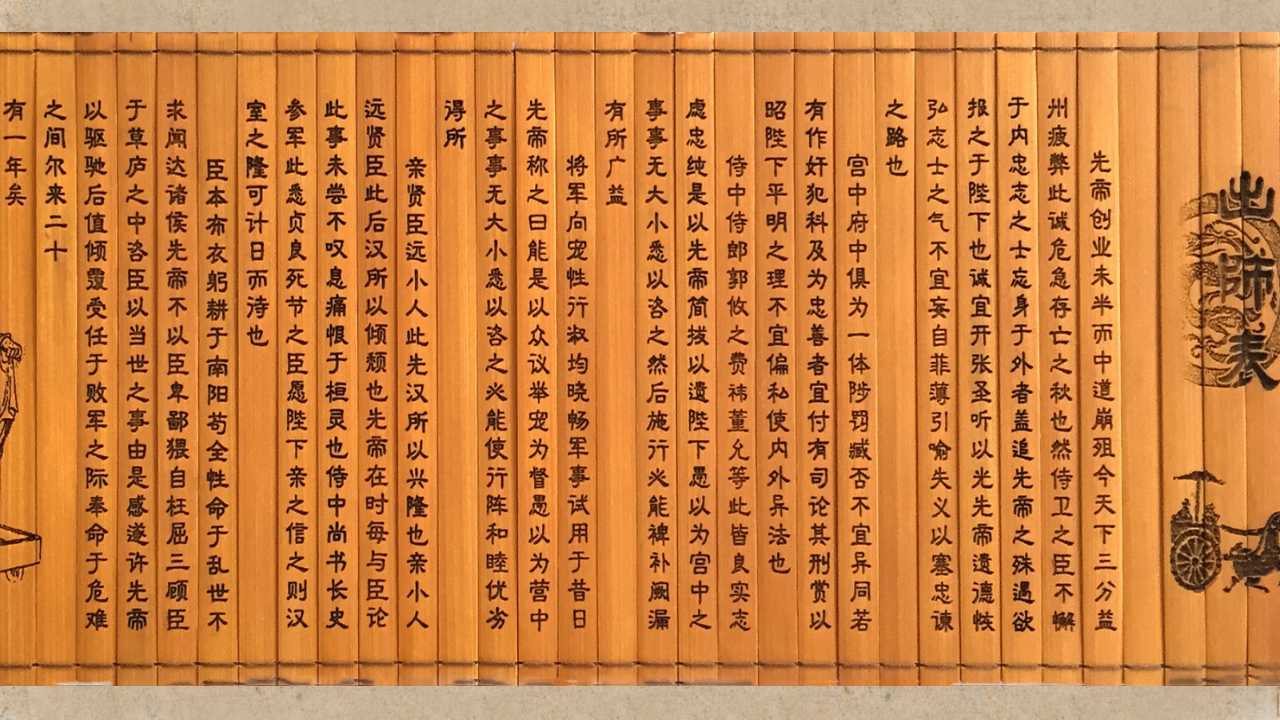 出師表
先帝创业未半而中道崩殂今天下三分益
州疲弊此诚危急存亡之秋也然侍卫之臣不懈
于内忠志之士忘身于外者盖追先帝之殊遇欲
报之于陛下也诚宜开张圣听以光先帝遗德恢
弘志士之气不宜妄自菲薄引喻失义以塞忠谏
之路也
宫中府中俱为一体陟罚臧否不宜异同若
有作奸犯科及为忠善者宜付有司论其刑赏以
昭陛下平明之理不宜偏私使内外异法也
侍中侍郎郭攸之费祎董允等此皆良实志
虑忠纯是以先帝简拔以遗陛下愚以为宫中之
事事无大小悉以咨之然后施行必能裨补阙漏
有所广益
将军向宠性行淑均晓畅军事试用于昔日
先帝称之曰能是以众议举宠为督愚以为营中
之事事无大小悉以咨之必能使行阵和睦优劣
得所
亲贤臣远小人此先汉所以兴隆也亲小人
远贤臣此后汉所以倾颓也先帝在时每与臣论
此事未尝不叹息痛恨于桓灵也侍中尚书长史
参军此悉贞良死节之臣愿陛下亲之信之则汉
室之隆可计日而待也
臣本布衣躬耕于南阳苟全性命于乱世不
求闻达诸侯先帝不以臣卑鄙猥自枉屈三顾臣
于草庐之中咨臣以当世之事由是感遂许先帝
以驱驰后值倾覆受任于败军之际奉命于危难
之间尔来二十
有一年矣